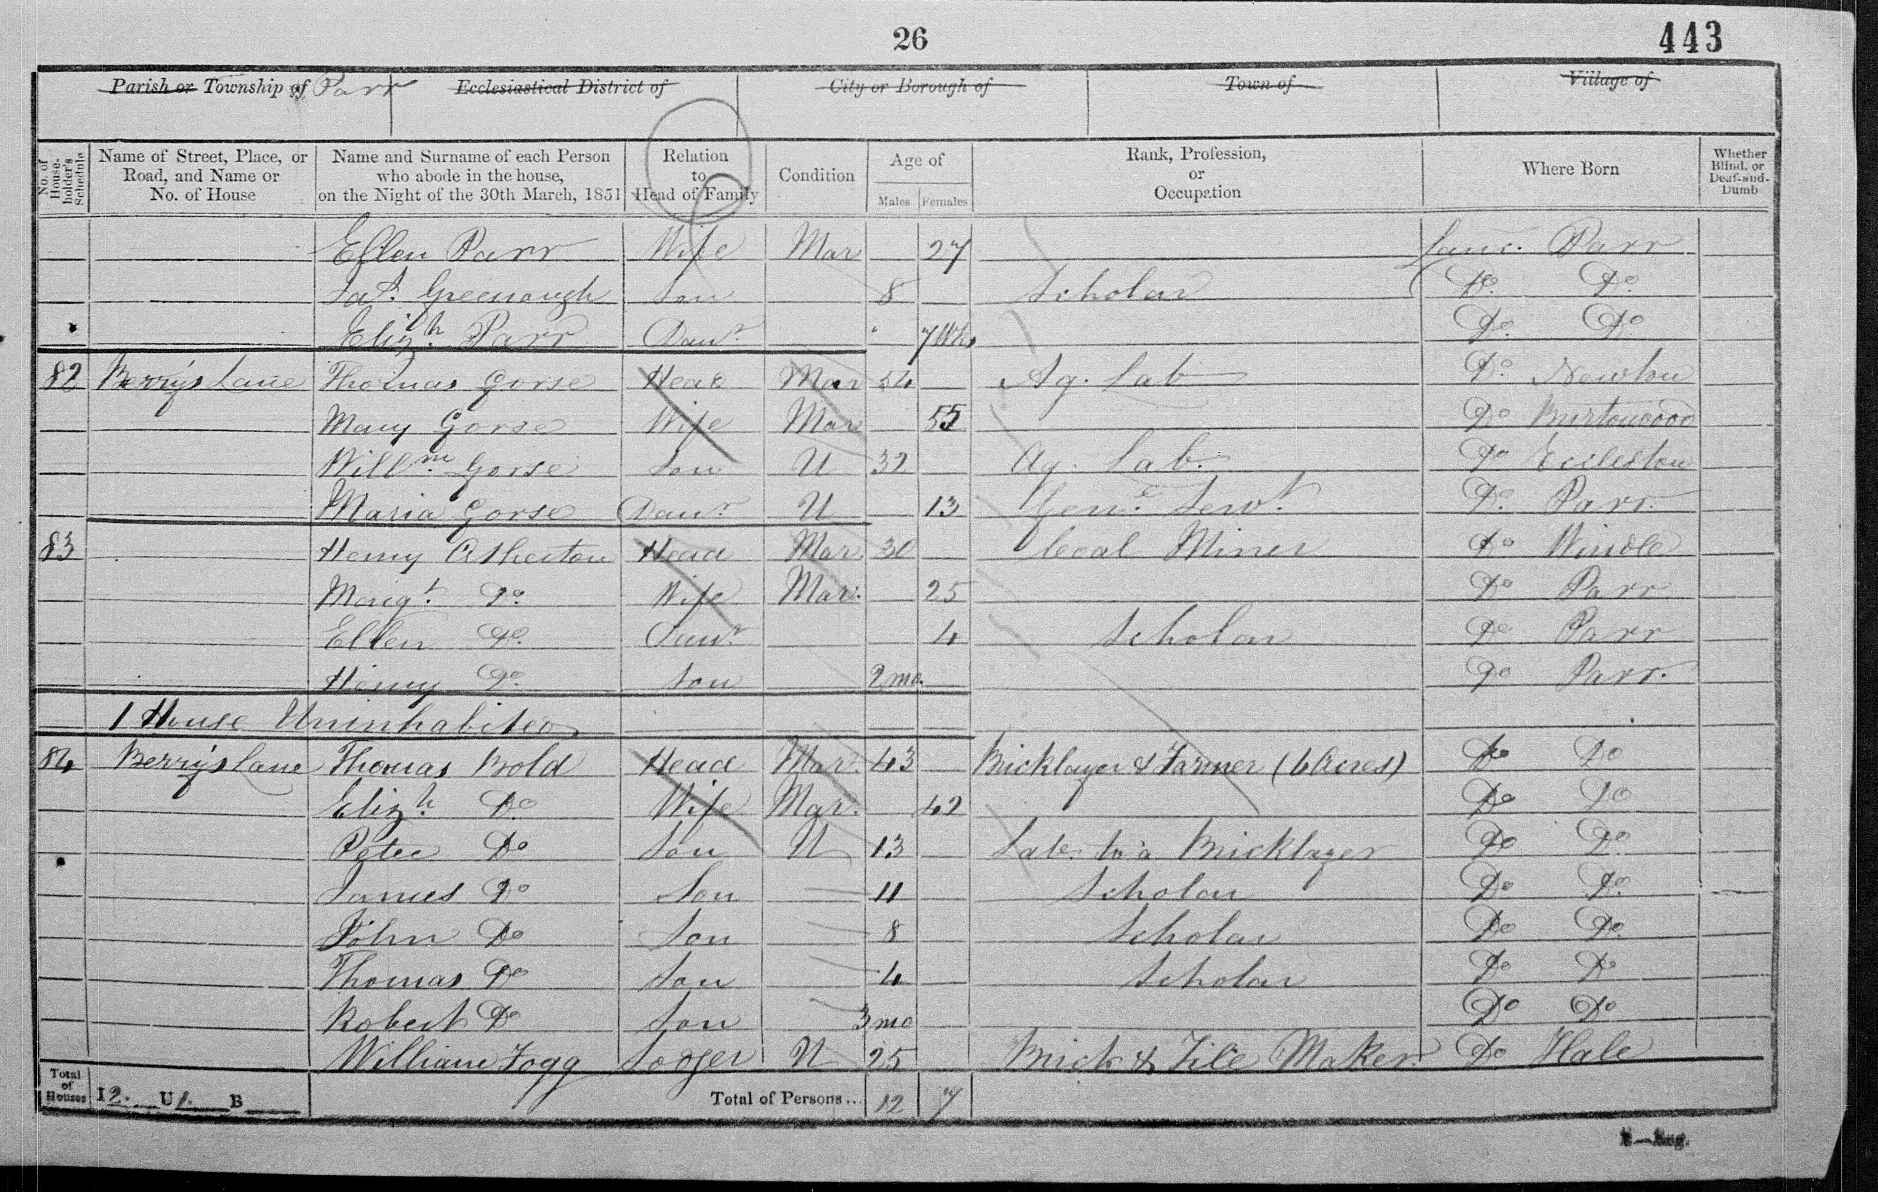 26
443
Parish or Township of Parr Ecclesiastical District of City or Borough of Town of Village of
No. of House-holder's Schedule
Name of Street, Place, or Road, and Name or No. of House
Name and Surname of each Person who abode in the house, on the Night of the 30th March, 1851
Relation to Head of Family
Condition
Age of
Males Females
Rank, Profession, or Occupation
Where Born
Whether Blind, or Deaf-and-Dumb
Ellen Parr Wife Mar 27 Lanc. Parr
Jas. Greenough Son 8 Scholar Do. Do.
Elizh Parr Daur. 7 Wks Do. Do
82 Berrys Lane Thomas Gorse Head Mar 54 Ag. Lab Do. Newton
Mary Gorse Wife Mar 55 Do Burtonwood
Willm Gorse Son U 32 Ag. Lab. Do Eccleston
Maria Gorse Daur. U 13 Genl Servt. Do. Parr
83 Henry Atherton Head Mar 30 Coal Miner Do Windle
Margt. Do. Wife Mar. 25 Do Parr
Ellen Do. Daur. 4 Scholar Do Parr
Henry Do. Son 2 mo. Do Parr.
1 House Uninhabited
84 Berry's Lane Thomas Bold Head Mar. 43 Bricklayer & Farmer (6 Acres) Do Do
Elizh. Do Wife Mar. 42 Do Do
Peter Do Son U 13 Labr. to a Bricklayer Do Do
James Do Son 11 Scholar Do Do
John Do Son 8 Scholar Do Do
Thomas Do Son 4 Scholar Do Do
Robert Do Son 3 mo Do Do
William Fogg Lodger U 25 Brick & Tile Maker Do Hale
Total of Houses I 2. U 1. B Total of Persons... 12 7